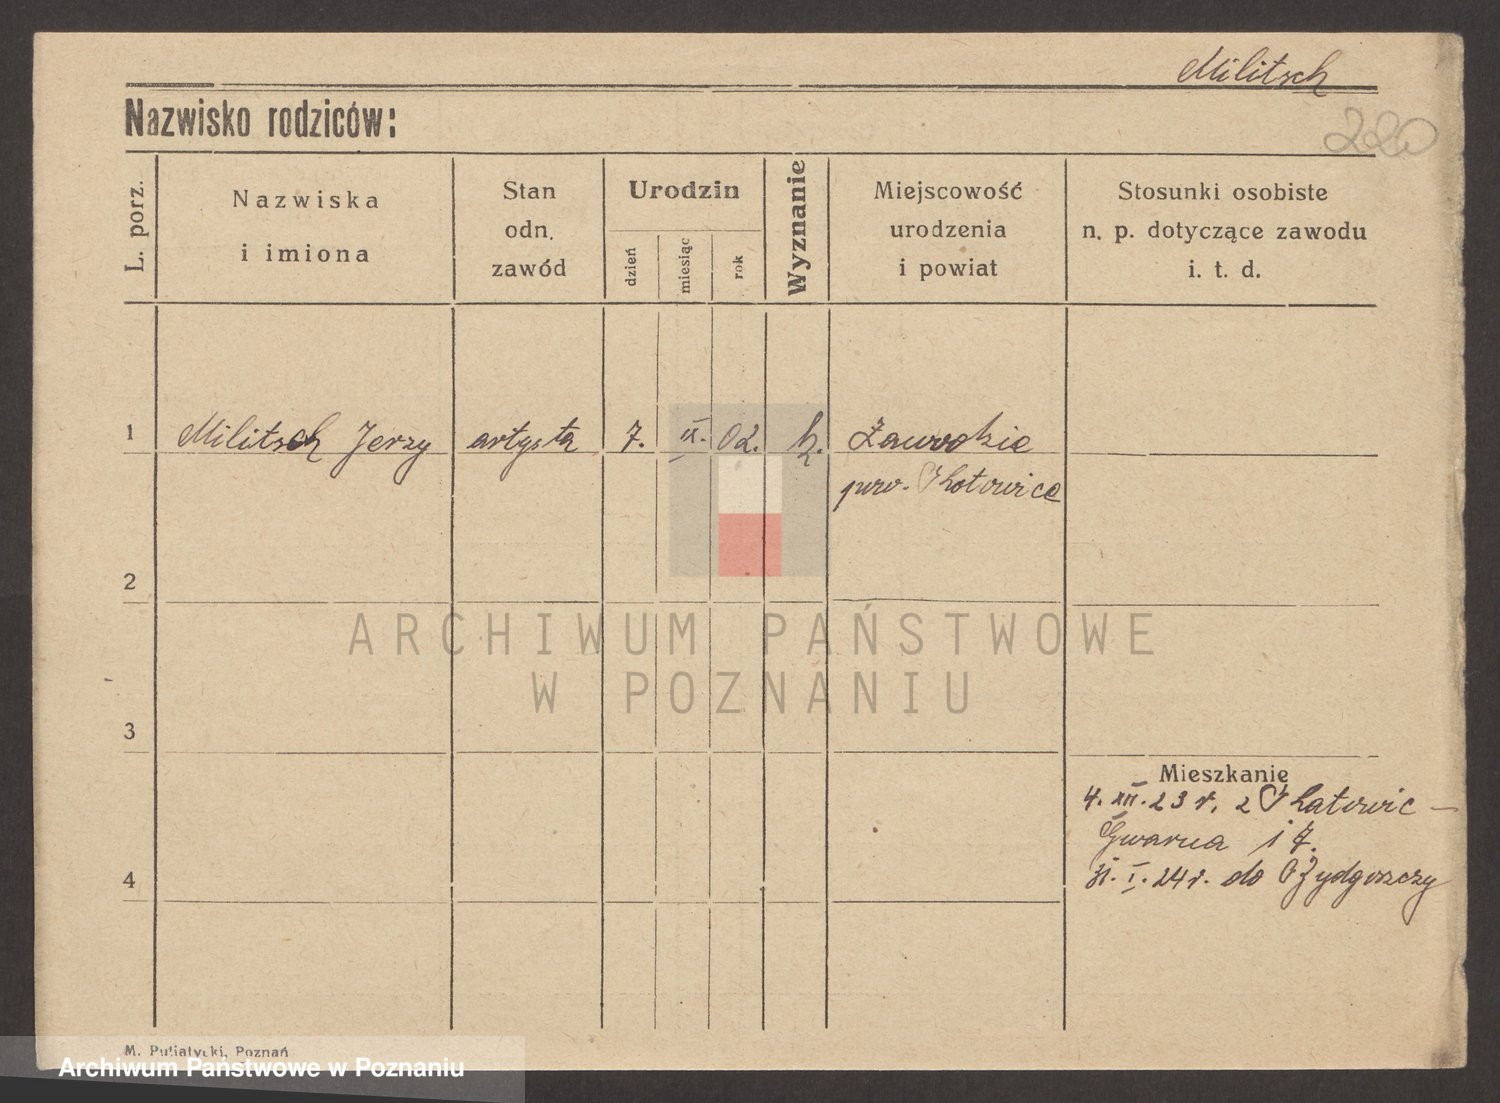 Militsch
Nazwisko rodziców:
220
L. porz.
Nazwiska
i imiona
Stan
odn.
zawód
Urodzin
dzień
miesiąc
rok
Wyznanie
Miejscowość
urodzenia
i powiat
Stosunki osobiste
n. p. dotyczące zawodu
i. t. d.
1 Militsch Jerzy artysta 7. II. 02. k. Zawodzie
pow. Katowice
2
ARCHIWUM PAŃSTWOWE
W POZNANIU
3
Mieszkanie
4. XII. 23 r. z Katowic –
Gwarna 17.
31. I. 24 r. do Bydgoszczy
4
M. Putiatycki, Poznań
Archiwum Państwowe w Poznaniu